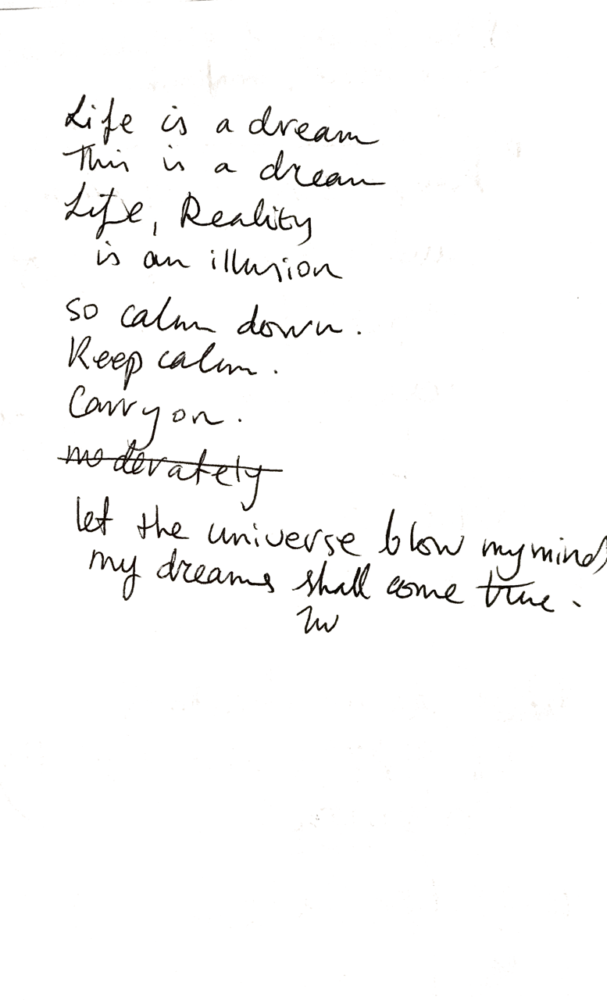 Life is a dream
This is a dream
Life, Reality
is an illusion
so calm down.
Keep calm.
Carry on.
moderately
let the universe blow my mind,
my dreams shall come true.